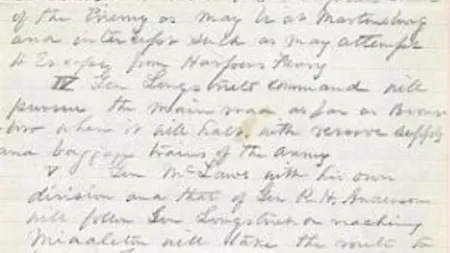 of the Enemy as may be at Martinsburg
and intercept such as may attempt
to Escape from Harpers Ferry
IV Gen Longstreets command will
pursue the main road as far as Boons-
boro where it will halt, with reserve supply
and baggage trains of the army
V Gen McLaws with his own
division and that of Gen R. H. Anderson
will follow Gen Longstreet on reaching
Middleton will take the route to